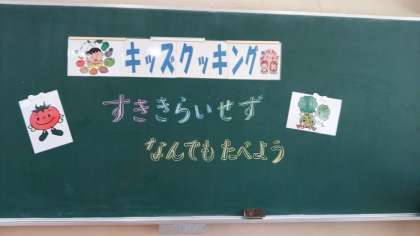 キッズクッキング
すききらいせず
なんでもたべよう